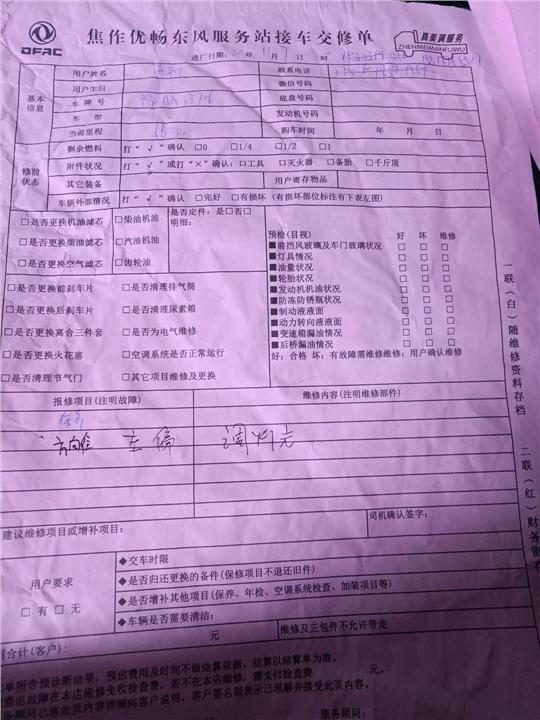 DFAC
焦作优畅东风服务站接车交修单
真美满服务
ZHENMEIMANFUWU
进厂日期: 年 月 日 时
基本信息
用户姓名 联系电话
用户生日 微信号码
车牌号 底盘号码
车型 发动机号码
当前里程 购车时间 年 月 日
修前状态
剩余燃料 打“√”确认 □0 □1/4 □1/2 □1
附件状况 打“√”或打“×”确认: □工具 □灭火器 □备胎 □千斤顶
其它装备 用户寄存物品
车辆外部情况 打“√”确认 □完好 □有损坏 (有损坏部位标注有下表左图)
□是否更换机油滤芯 □柴油机油 是否定件: 是□否□
明细:
□是否更换柴油滤芯 □汽油机油
□是否更换空气滤芯 □齿轮油
□是否更换前刹车片 □是否清理排气筒
□是否更换后刹车片 □是否清理尿素箱
□是否更换离合三件套 □是否为电气维修
□是否更换火花塞 □空调系统是否正常运行
□是否清理节气门 □其它项目维修及更换
预检(目视) 好 坏 维修
■前挡风玻璃及车门玻璃状况 □ □ □
■灯具情况 □ □ □
■油量状况 □ □ □
■轮胎状况 □ □ □
■发动机机油状况 □ □ □
■防冻防锈瓶状况 □ □ □
■制动液液面 □ □ □
■动力转向液液面 □ □ □
■变速箱漏油情况 □ □ □
■后桥漏油情况 □ □ □
好: 合格 坏: 有故障需维修维修: 用户确认维修
报修项目(注明故障) 维修内容(注明维修部件)
方向 左偏
建议维修项目或增补项目:
司机确认签字:
用户要求
□有 □无
◆交车时限
◆是否归还更换的备件(保修项目不退还旧件)
◆是否增补其他项目(保养、年检、空调系统检查、加装项目等)
◆车辆是否需要清洁:
目合计(客户): 元 维修及三包件不允许带走
单所含预诊断结果, 预估费用及时间不做结算依据, 结算以结算单为准,
查出故障在本店维修免收检查费, 若不在本店维修, 需支付检查费 元,
服务顾问已将此页内容详细向客户说明, 客户签名则表示已理解并接受此页内容,
服务顾问:
一联(白)随维修资料存档
二联(红)财务留存